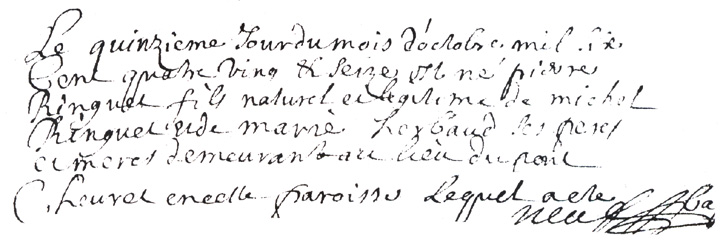 Le quinzieme Jour du mois d'octobre mil six
Cent quatre ving & seize est né pierre
Ringuet fils naturel et legitime de michel
Ringuet et de marie Heybaud ses peres
et meres demeurant au lieu du pont
Cheuret en cette paroisse Lequel a este
ba